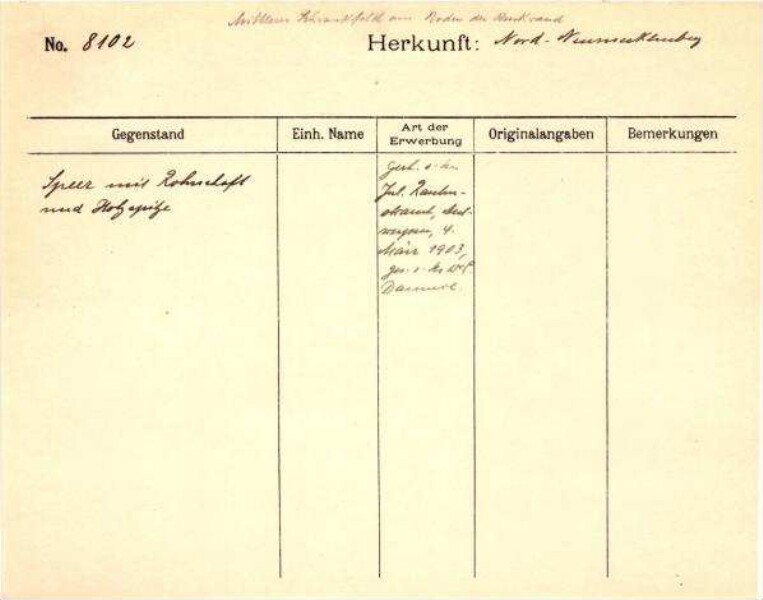 Mittleres Schrankfeld am Boden der Rückwand
No. 8102
Herkunft: Nord-Neumecklenburg
Gegenstand
Einh. Name
Art der Erwerbung
Originalangaben
Bemerkungen
Speer mit Rohrschaft
und Holzspitze
Gesch. v. Hn.
Jul.
4.
März 1903,
ges. v.